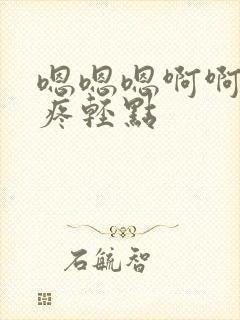 嗯嗯嗯啊啊
疼輕點
石毓智